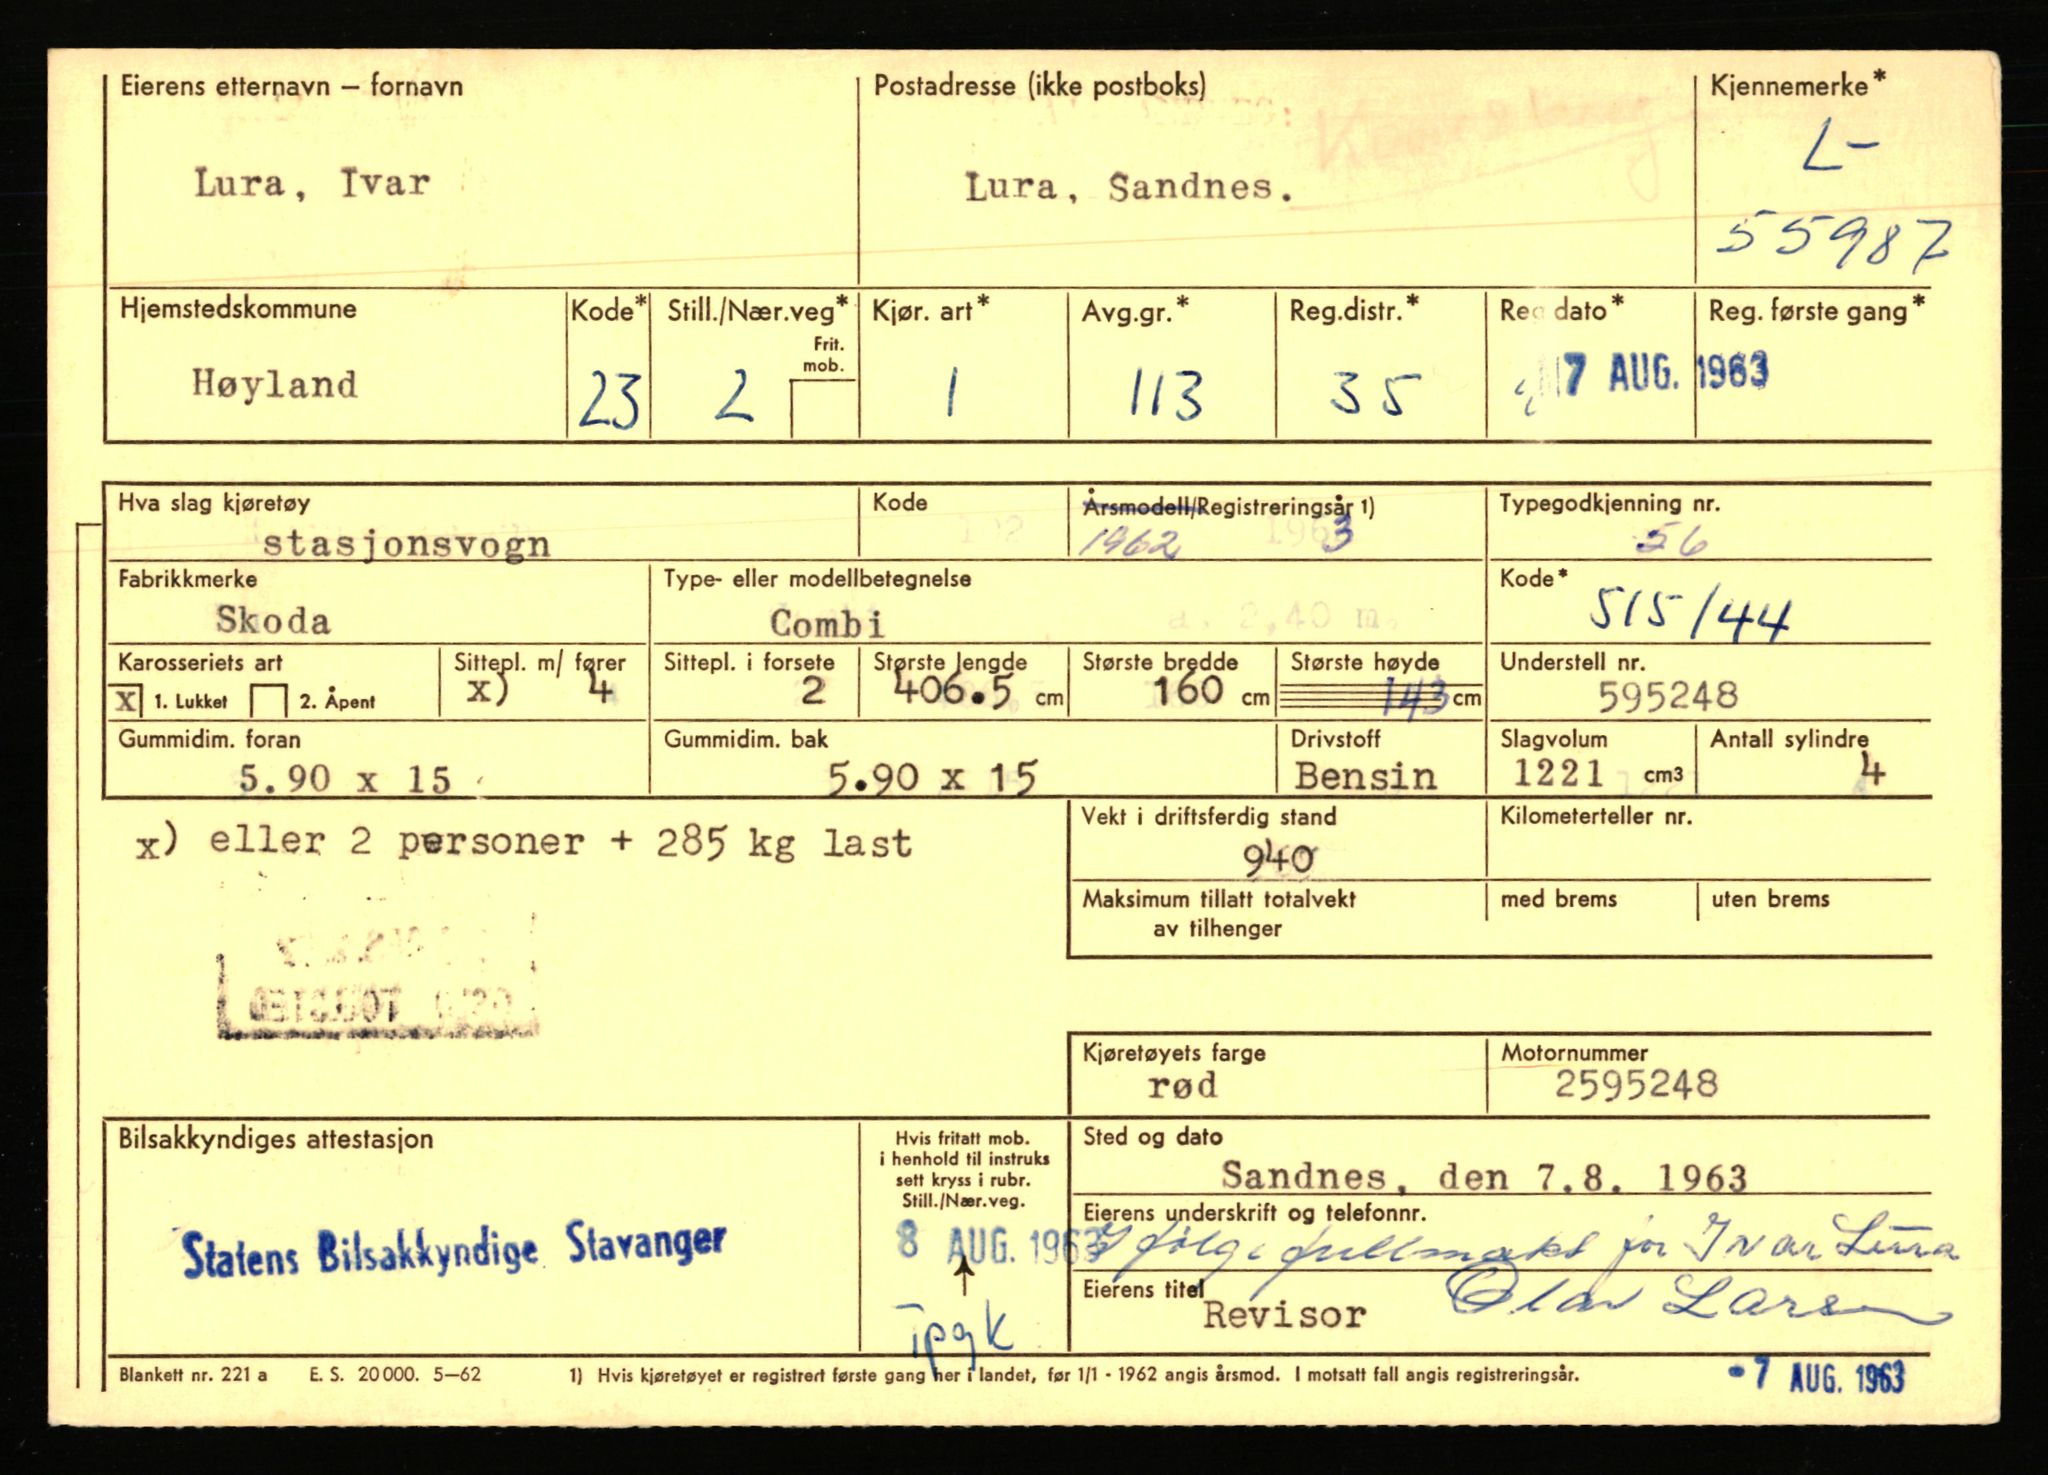 Eierens etternavn – fornavn
Postadresse (ikke postboks)
Kjennemerke*
Lura, Ivar
Lura, Sandnes.
L-
55987
Hjemstedskommune
Kode*
Still./Nær.veg*
Frit.
mob.
Kjør. art*
Avg.gr.*
Reg.distr.*
Reg dato*
Reg. første gang*
Høyland
23
2
1
113
35
7 AUG. 1963
Hva slag kjøretøy
Kode
Årsmodell/Registreringsår 1)
Typegodkjenning nr.
stasjonsvogn
1962 1963
56
Fabrikkmerke
Type- eller modellbetegnelse
Kode*
Skoda
Combi
a. 2,40 m.
515/44
Karosseriets art
Sittepl. m/ fører
Sittepl. i forsete
Største lengde
Største bredde
Største høyde
Understell nr.
X 1. Lukket 2. Åpent
x) 4
2
406.5 cm
160 cm
143 cm
595248
Gummidim. foran
Gummidim. bak
Drivstoff
Slagvolum
Antall sylindre
5.90 x 15
5.90 x 15
Bensin
1221 cm3
4
x) eller 2 personer + 285 kg last
Vekt i driftsferdig stand
Kilometerteller nr.
940
Maksimum tillatt totalvekt
av tilhenger
med brems
uten brems
Kjøretøyets farge
Motornummer
rød
2595248
Bilsakkyndiges attestasjon
Hvis fritatt mob.
i henhold til instruks
sett kryss i rubr.
Still./Nær.veg.
Sted og dato
Sandnes, den 7.8. 1963
Eierens underskrift og telefonnr.
Statens Bilsakkyndige Stavanger
8 AUG. 1963
I følge fullmakt for Ivar Lura
Eierens titel
Revisor
Olav Larsen
Tpgk
Blankett nr. 221 a E. S. 20000. 5–62
1) Hvis kjøretøyet er registrert første gang her i landet, før 1/1 - 1962 angis årsmod. I motsatt fall angis registreringsår.
-7 AUG. 1963